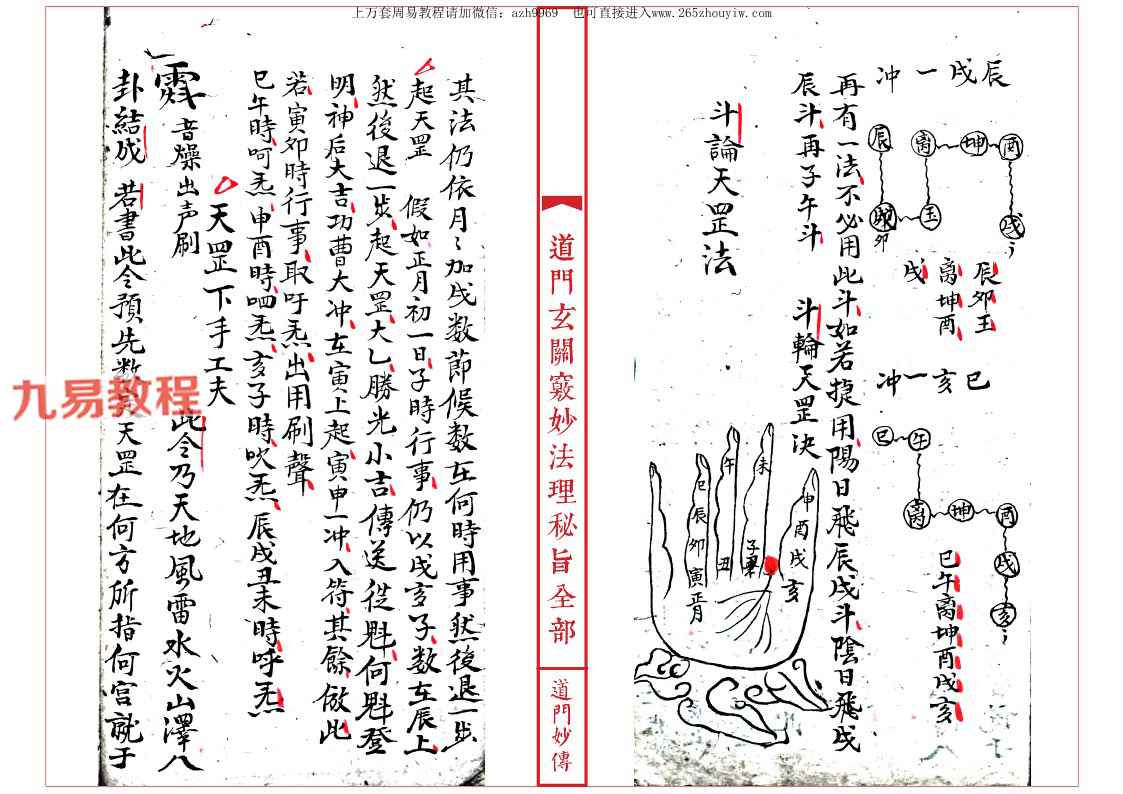 上万套周易教程请加微信：azh9969　也可直接进入www.265zhouyiw.com
辰戌一冲
辰
卯
卯
玉
离
坤
酉
戌
辰卯玉
离坤酉
戌
巳亥一冲
巳
午
离
坤
酉
戌
亥
巳午离坤酉戌亥
再有一法不必用此斗如若捷用陽日飛辰戌斗陰日飛戌
辰斗再子午斗　斗輪天罡决
斗論天罡法
巳辰卯寅正月
午
丑
未
子
申酉戌亥
道門玄關竅妙法理秘旨全部
道門妙傳
其法仍依月〻加戌数節候数在何時用事然後退一步
起天罡　假如正月初一日子時行事仍以戌亥子数在辰上
然後退一步起天罡大乙勝光小吉傳送從魁何魁登
明神后大吉功曹大冲在寅上起寅申一冲入符其餘倣此
若寅卯時行事取吁炁出用刷聲
巳午時呵炁申酉時呬炁亥子時吹炁辰戌丑未時呼炁
天罡下手工夫
音燥出声刷　此令乃天地風雷水火山澤八
卦結成　若書此令預先数天罡在何方所指何宫就于
九易教程